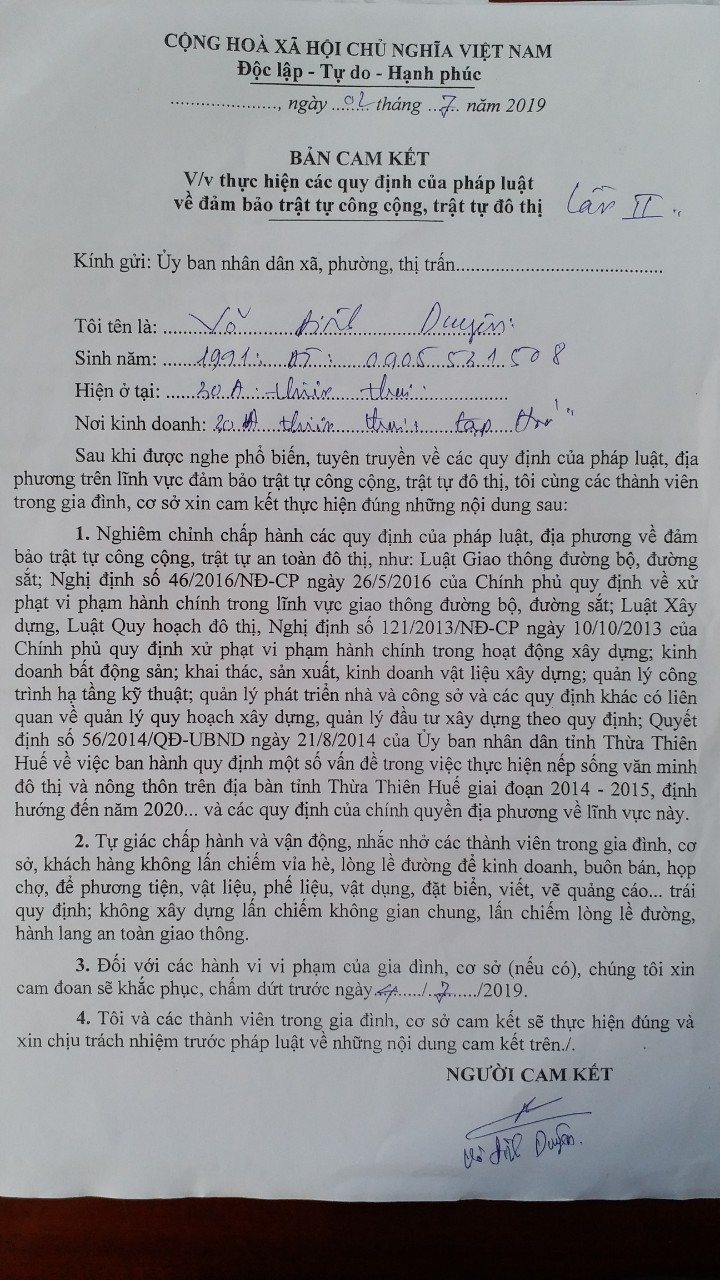 CỘNG HOÀ XÃ HỘI CHỦ NGHĨA VIỆT NAM
Độc lập - Tự do - Hạnh phúc
...................., ngày ..02.. tháng ..7.. năm 2019
BẢN CAM KẾT
V/v thực hiện các quy định của pháp luật
về đảm bảo trật tự công cộng, trật tự đô thị Lần II
Kính gửi: Ủy ban nhân dân xã, phường, thị trấn......................................
Tôi tên là: ..... Võ Đình Duyên
Sinh năm: ..... 1991. ĐT: 0905 531 508
Hiện ở tại: ..... 30A
Nơi kinh doanh: 30A
Sau khi được nghe phổ biến, tuyên truyền về các quy định của pháp luật, địa
phương trên lĩnh vực đảm bảo trật tự công cộng, trật tự đô thị, tôi cùng các thành viên
trong gia đình, cơ sở xin cam kết thực hiện đúng những nội dung sau:
1. Nghiêm chỉnh chấp hành các quy định của pháp luật, địa phương về đảm
bảo trật tự công cộng, trật tự an toàn đô thị, như: Luật Giao thông đường bộ, đường
sắt; Nghị định số 46/2016/NĐ-CP ngày 26/5/2016 của Chính phủ quy định về xử
phạt vi phạm hành chính trong lĩnh vực giao thông đường bộ, đường sắt; Luật Xây
dựng, Luật Quy hoạch đô thị, Nghị định số 121/2013/NĐ-CP ngày 10/10/2013 của
Chính phủ quy định xử phạt vi phạm hành chính trong hoạt động xây dựng; kinh
doanh bất động sản; khai thác, sản xuất, kinh doanh vật liệu xây dựng; quản lý công
trình hạ tầng kỹ thuật; quản lý phát triển nhà và công sở và các quy định khác có liên
quan về quản lý quy hoạch xây dựng, quản lý đầu tư xây dựng theo quy định; Quyết
định số 56/2014/QĐ-UBND ngày 21/8/2014 của Ủy ban nhân dân tỉnh Thừa Thiên
Huế về việc ban hành quy định một số vấn đề trong việc thực hiện nếp sống văn minh
đô thị và nông thôn trên địa bàn tỉnh Thừa Thiên Huế giai đoạn 2014 - 2015, định
hướng đến năm 2020... và các quy định của chính quyền địa phương về lĩnh vực này.
2. Tự giác chấp hành và vận động, nhắc nhở các thành viên trong gia đình, cơ
sở, khách hàng không lấn chiếm vỉa hè, lòng lề đường để kinh doanh, buôn bán, họp
chợ, để phương tiện, vật liệu, phế liệu, vật dụng, đặt biển, viết, vẽ quảng cáo... trái
quy định; không xây dựng lấn chiếm không gian chung, lấn chiếm lòng lề đường,
hành lang an toàn giao thông.
3. Đối với các hành vi vi phạm của gia đình, cơ sở (nếu có), chúng tôi xin
cam đoan sẽ khắc phục, chấm dứt trước ngày ...../..7...../2019.
4. Tôi và các thành viên trong gia đình, cơ sở cam kết sẽ thực hiện đúng và
xin chịu trách nhiệm trước pháp luật về những nội dung cam kết trên./.
NGƯỜI CAM KẾT
Võ Đình Duyên.